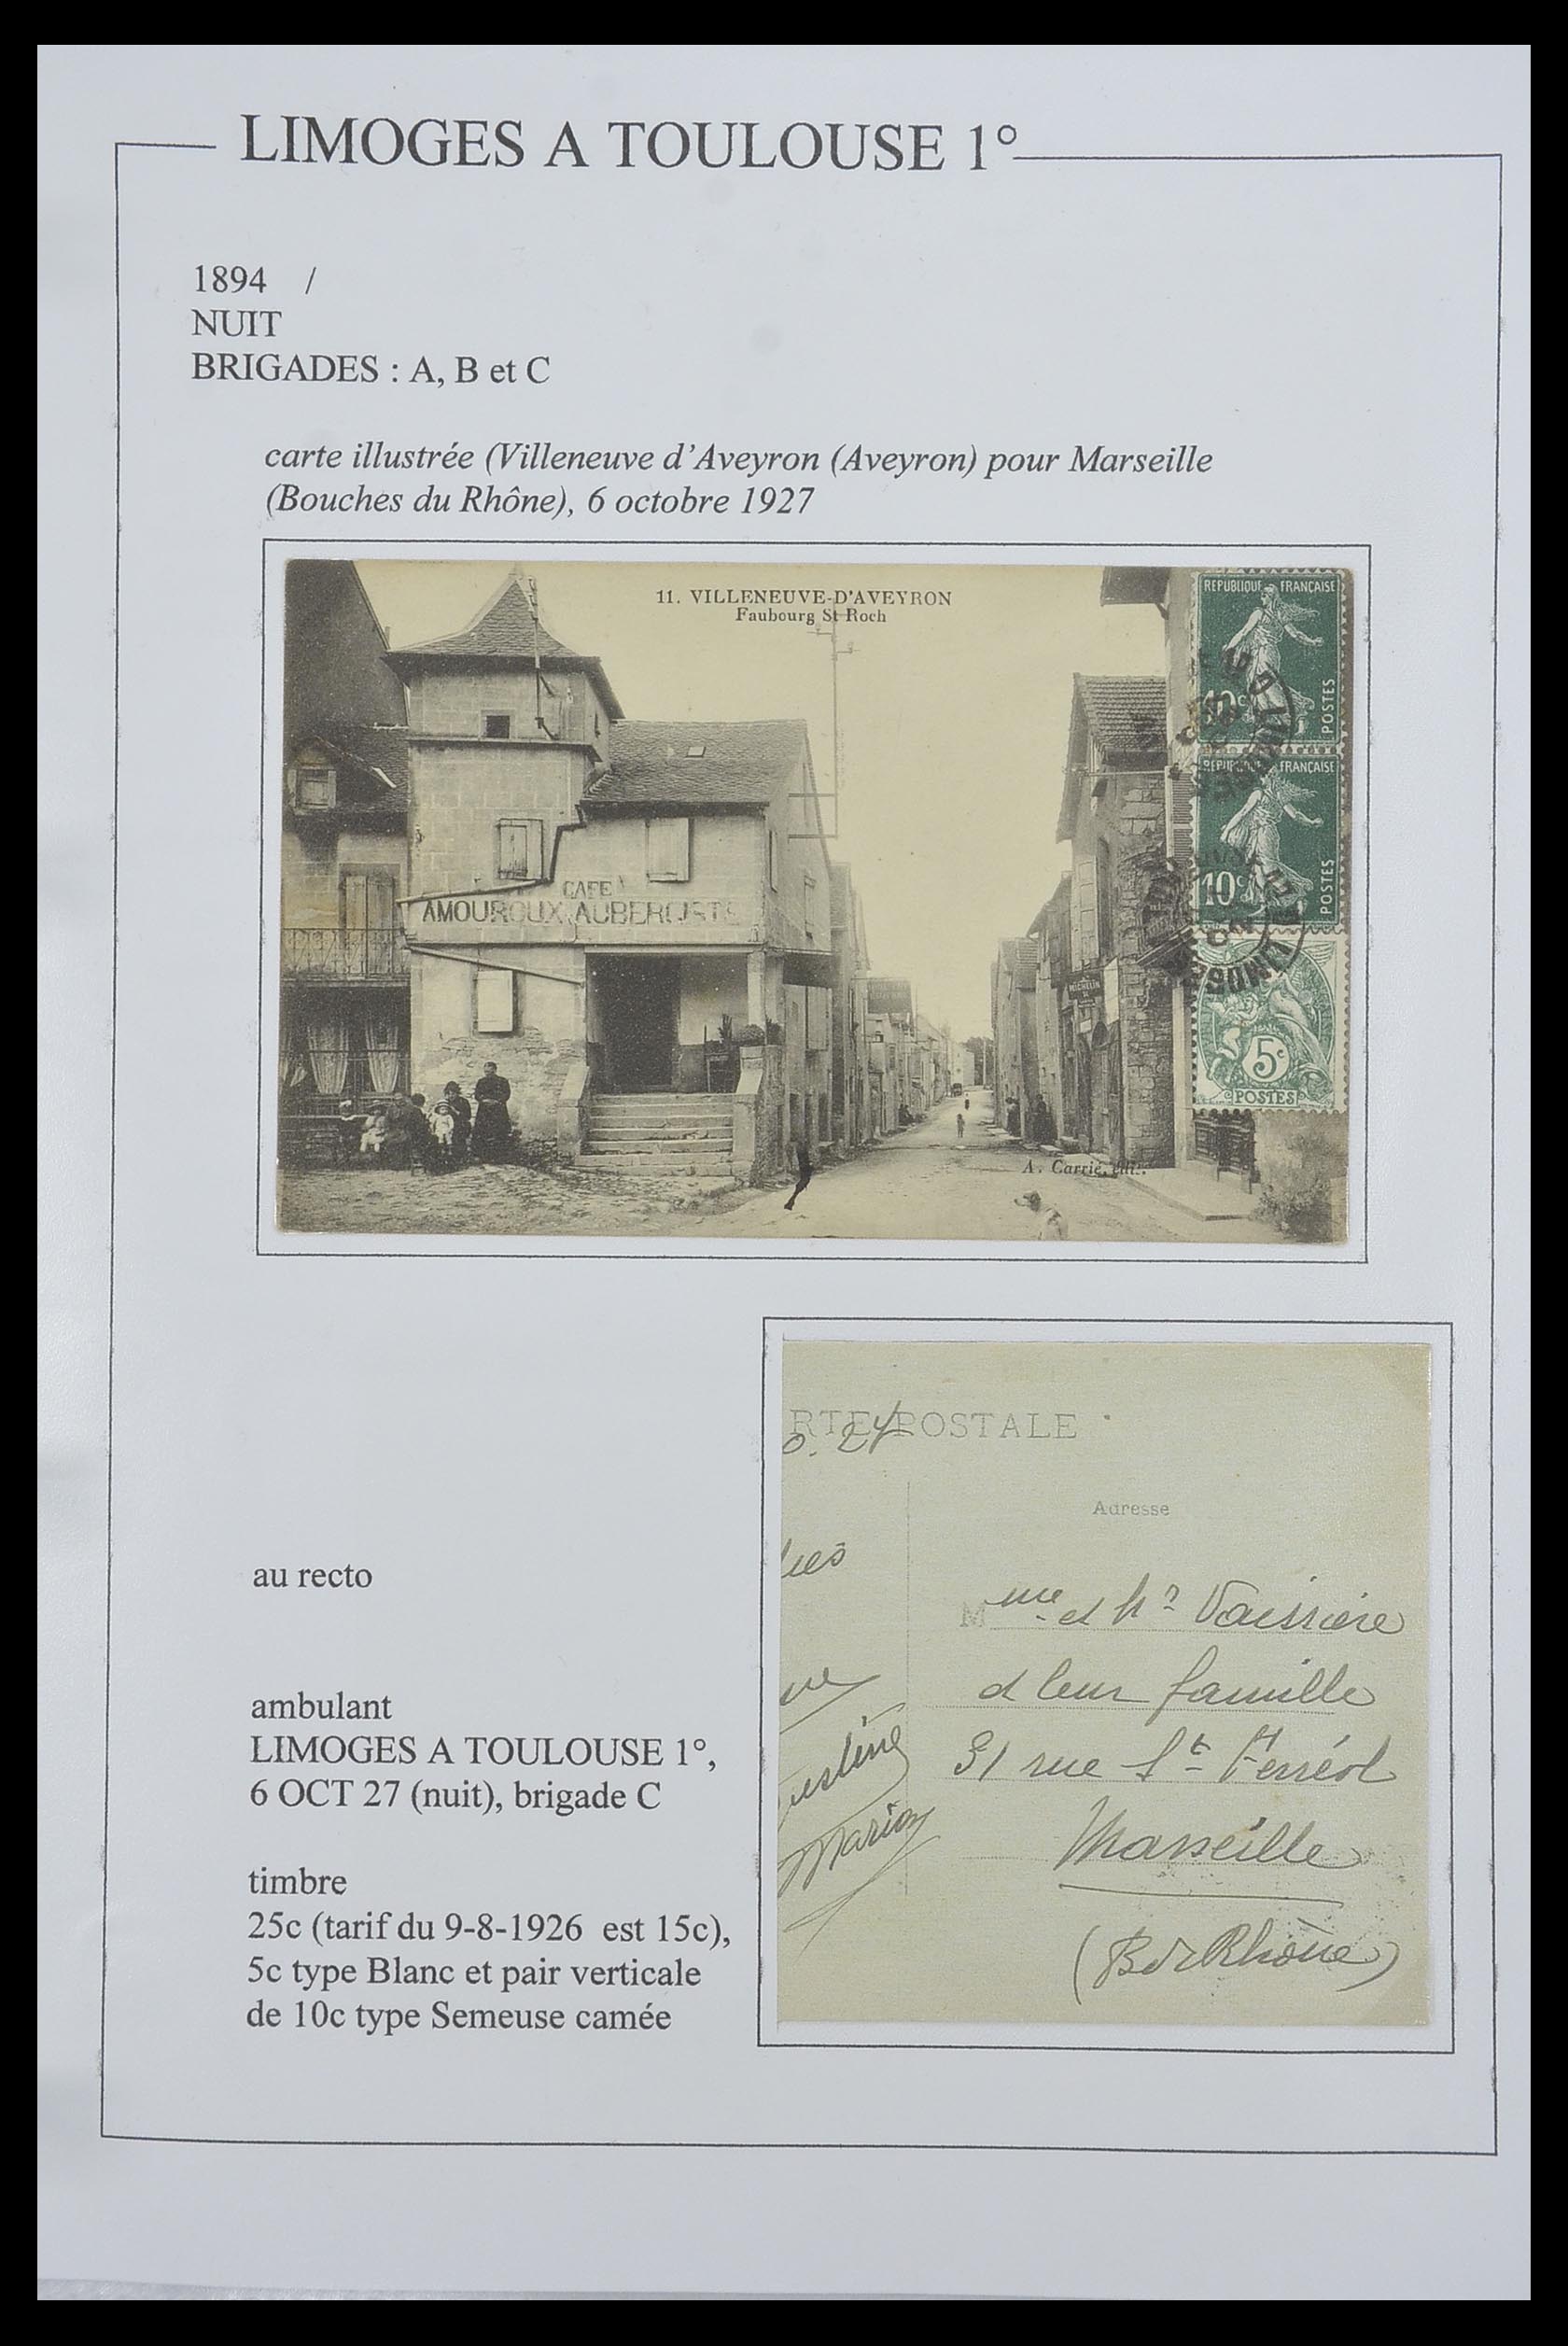 LIMOGES A TOULOUSE 1°
1894 /
NUIT
BRIGADES : A, B et C
carte illustrée (Villeneuve d'Aveyron (Aveyron) pour Marseille
(Bouches du Rhône), 6 octobre 1927
11. VILLENEUVE-D'AVEYRON
Faubourg St Roch
REPUBLIQUE FRANÇAISE
10c POSTES
REPUBLIQUE FRANÇAISE
10c POSTES
5c
POSTES
CAFE
AMOUROUX AUBERGISTE
MICHELIN
A. Carrié, édit.
RTE POSTALE
Adresse
Mme et Mr Vaissière
et leur famille
31 rue St Ferréol
Marseille
(B d Rhône)
Marion
au recto
ambulant
LIMOGES A TOULOUSE 1°,
6 OCT 27 (nuit), brigade C
timbre
25c (tarif du 9-8-1926 est 15c),
5c type Blanc et pair verticale
de 10c type Semeuse camée